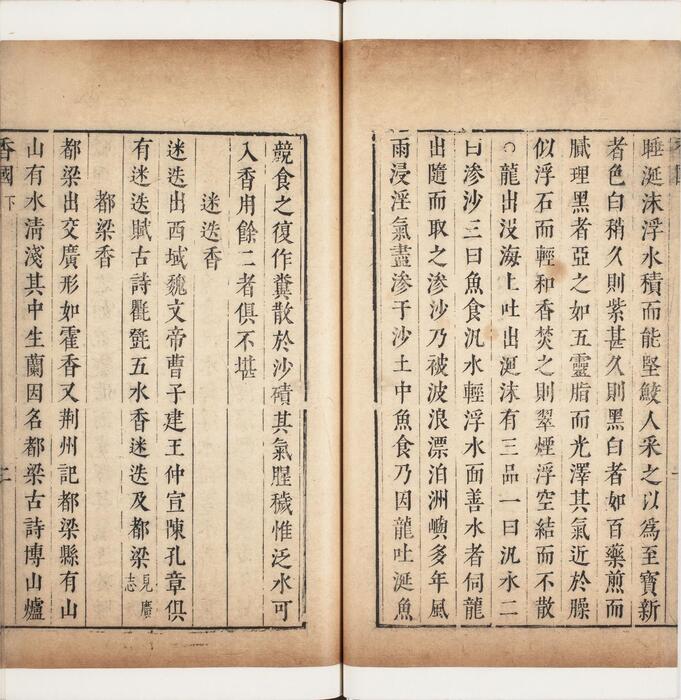 睡涎沫浮水積而能堅鮫人采之以為至寶新
者色白稍久則紫甚久則黑白者如百藥煎而
膩理黑者亞之如五靈脂而光澤其氣近於臊
似浮石而輕和香焚之則翠煙浮空結而不散
○龍出沒海上吐出涎沫有三品一曰汎水二
曰滲沙三曰魚食汎水輕浮水面善水者伺龍
出隨而取之滲沙乃被波浪漂泊洲嶼多年風
雨浸淫氣盡滲于沙土中魚食乃因龍吐涎魚
競食之復作糞散於沙磧其氣腥穢惟泛水可
入香用餘二者俱不堪
迷迭香
迷迭出西域魏文帝曹子建王仲宣陳孔章俱
有迷迭賦古詩氍㲪五水香迷迭及都梁見廣志
都梁香
都梁出交廣形如霍香又荆州記都梁縣有山
山有水清淺其中生蘭因名都梁古詩博山爐
香國 下
二